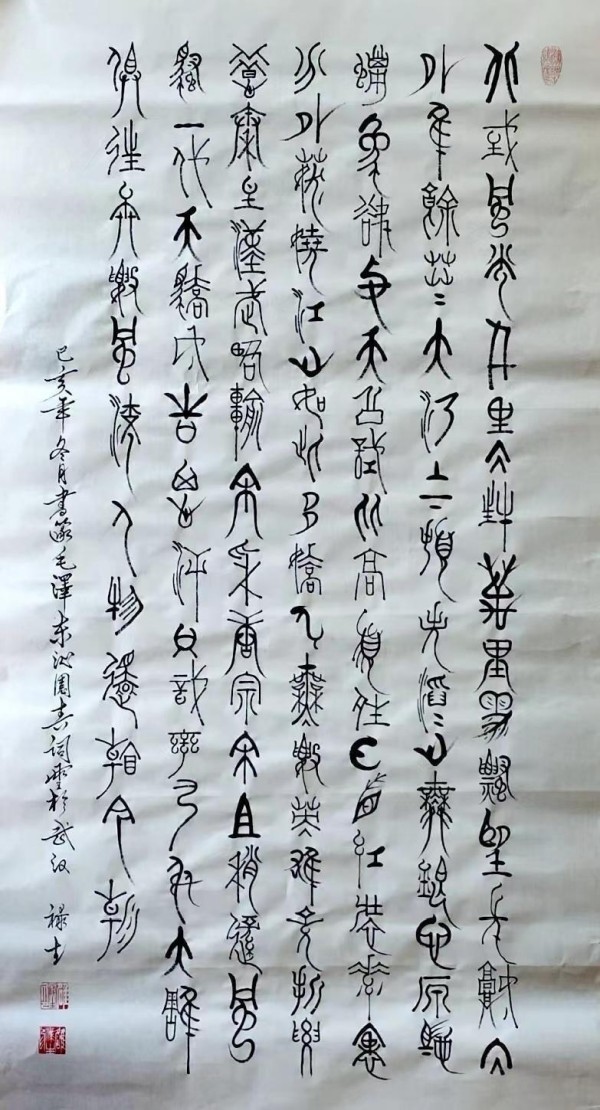 北或風光千里仌封萬里雪飄望長城內
外隹餘莽〻大河上下頓失滔〻山舞銀它原馳
蠟象欲與天公試比高須晴日看紅裝素裹
分外妖嬈江山如此多嬌引無數英雄竞折要
惜秦皇漢武略輸文采唐宗宋且稍遜風
騷一代天驕成吉思汗只識彎弓射大雕
俱往矣數風流人物還看今朝
己亥年冬月書毛澤東沁園春詞雪於武汉 禄